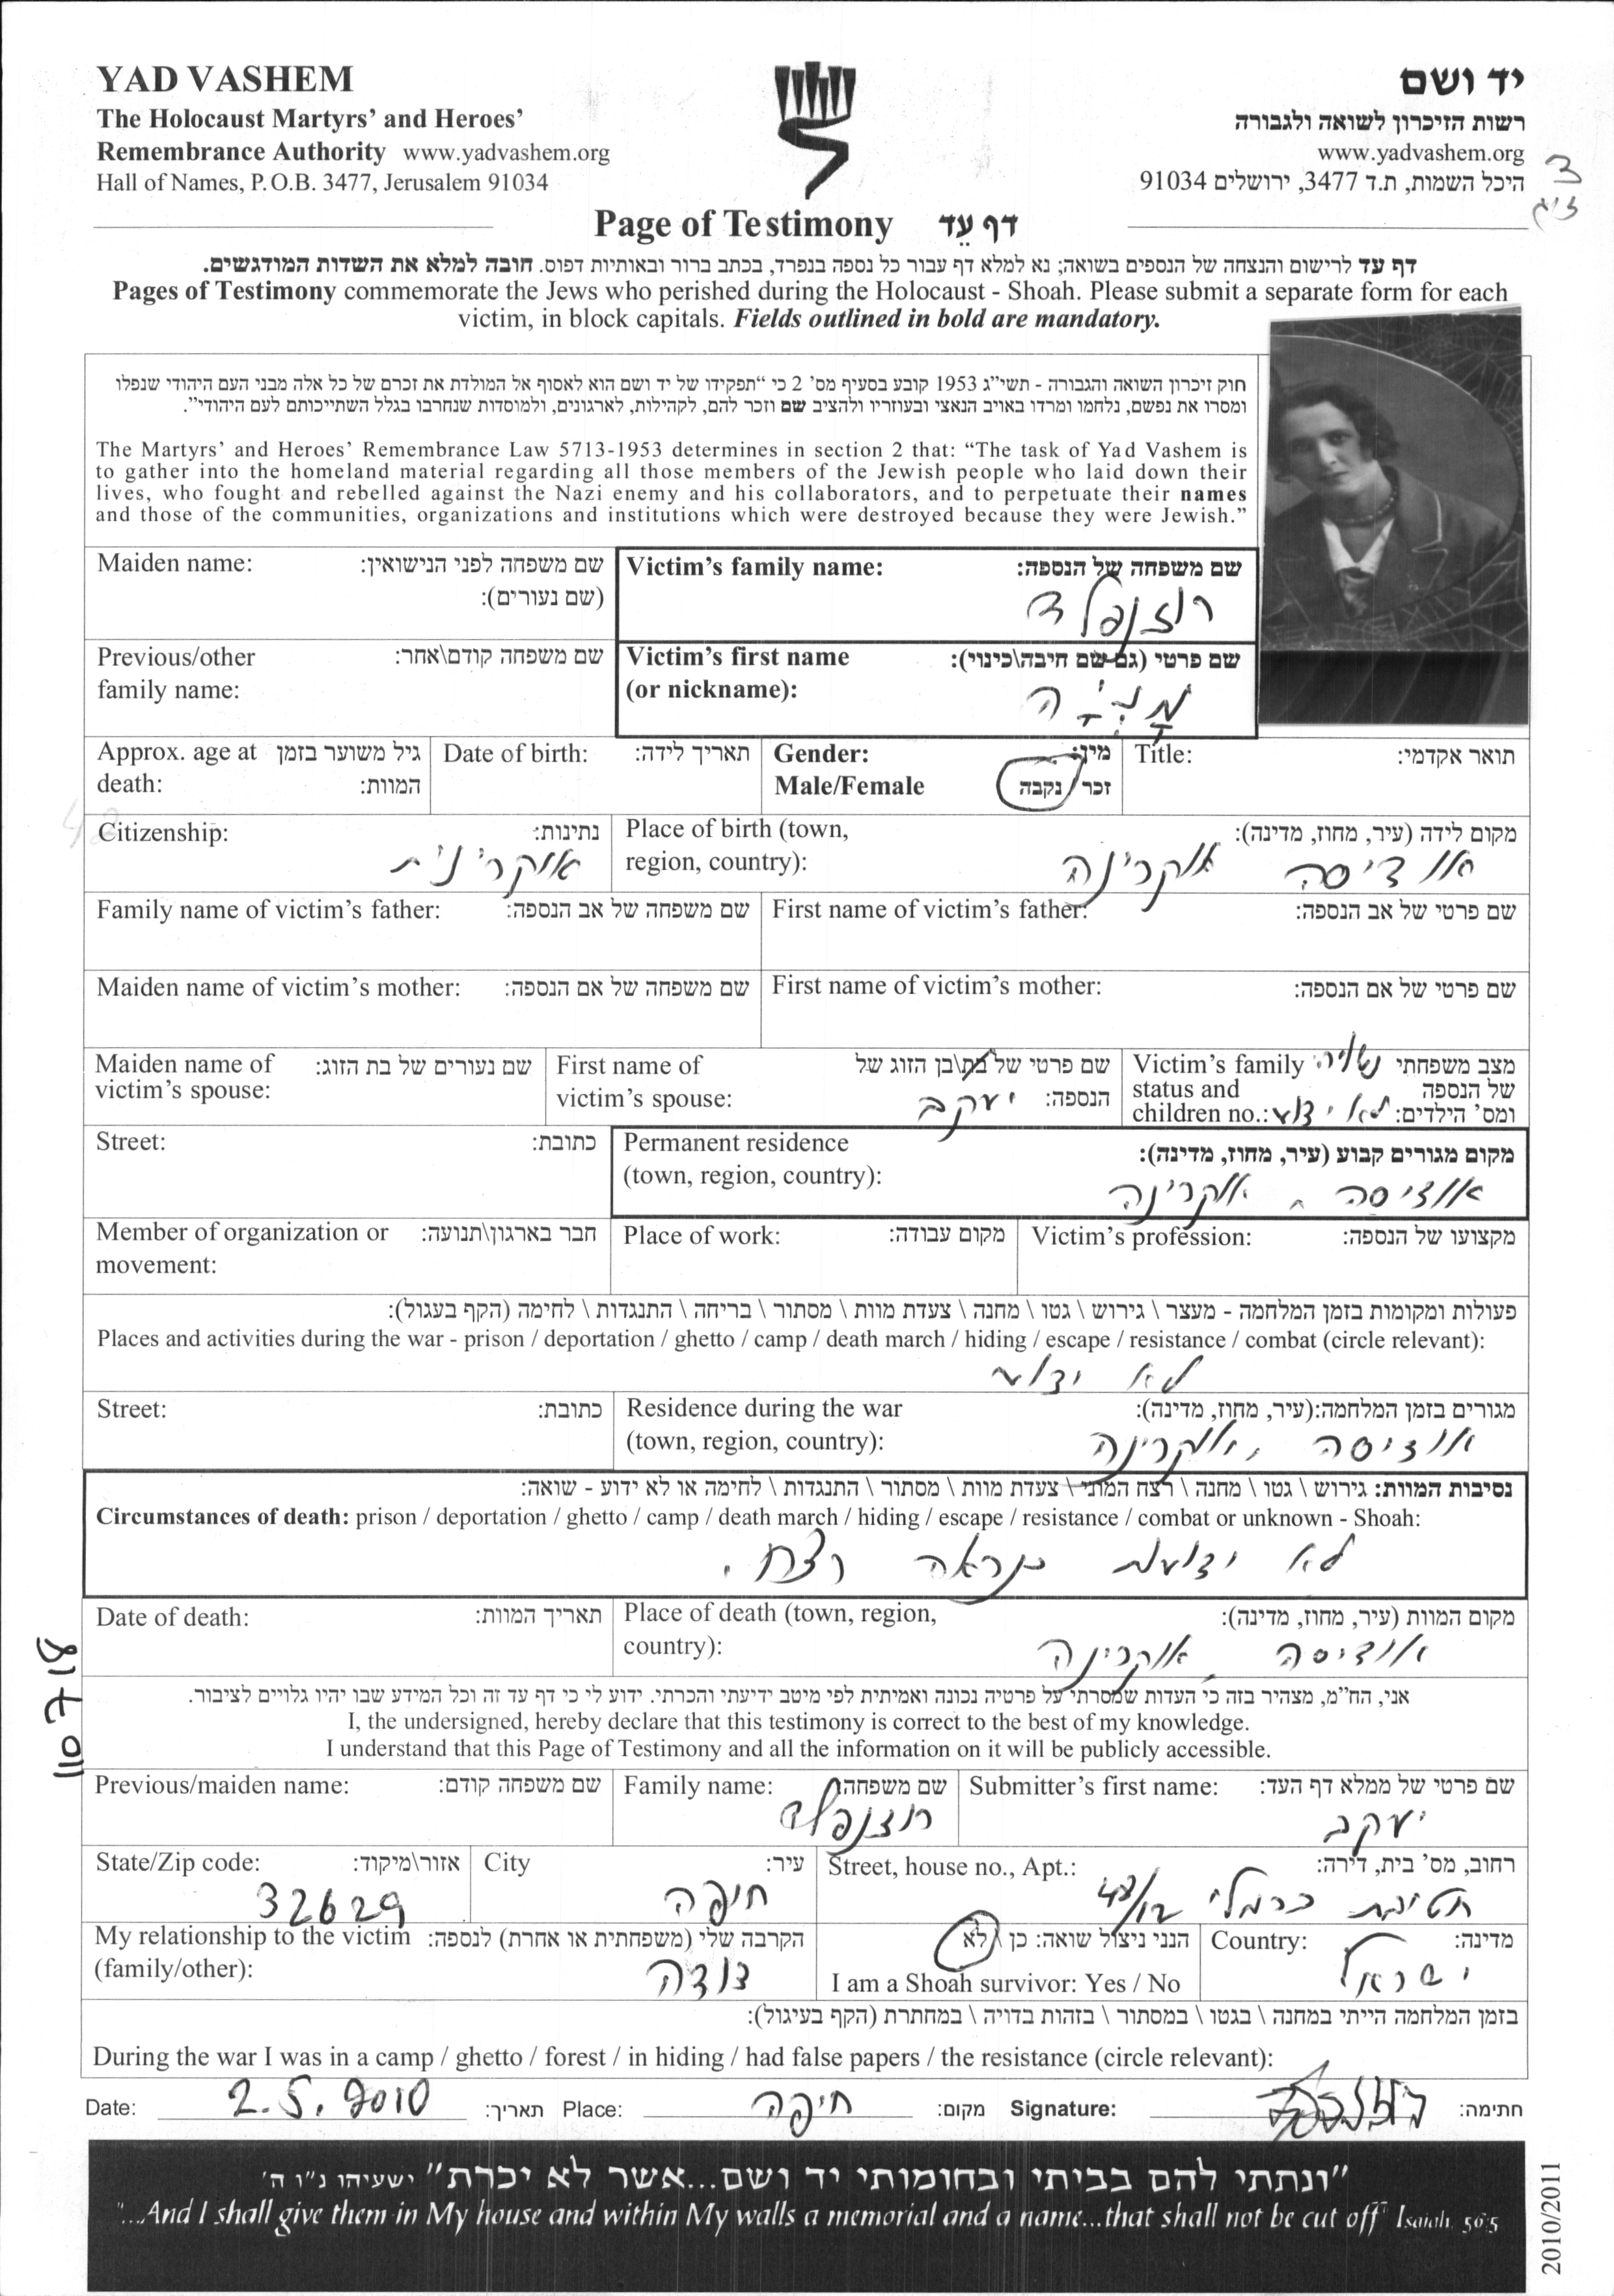 YAD VASHEM
The Holocaust Martyrs' and Heroes'
Remembrance Authority www.yadvashem.org
Hall of Names, P.O.B. 3477, Jerusalem 91034
יד ושם
רשות הזיכרון לשואה ולגבורה
www.yadvashem.org
היכל השמות, ת.ד 3477, ירושלים 91034
Page of Testimony דף עֵד
דף עד לרישום והנצחה של הנספים בשואה; נא למלא דף עבור כל נספה בנפרד, בכתב ברור ובאותיות דפוס. חובה למלא את השדות המודגשים.
Pages of Testimony commemorate the Jews who perished during the Holocaust - Shoah. Please submit a separate form for each
victim, in block capitals. Fields outlined in bold are mandatory.
חוק זיכרון השואה והגבורה - תשי"ג 1953 קובע בסעיף מס' 2 כי "תפקידו של יד ושם הוא לאסוף אל המולדת את זכרם של כל אלה מבני העם היהודי שנפלו
ומסרו את נפשם, נלחמו ומרדו באויב הנאצי ובעוזריו ולהציב שם וזכר להם, לקהילות, לארגונים, ולמוסדות שנחרבו בגלל השתייכותם לעם היהודי".
The Martyrs' and Heroes' Remembrance Law 5713-1953 determines in section 2 that: "The task of Yad Vashem is
to gather into the homeland material regarding all those members of the Jewish people who laid down their
lives, who fought and rebelled against the Nazi enemy and his collaborators, and to perpetuate their names
and those of the communities, organizations and institutions which were destroyed because they were Jewish."
Maiden name: שם משפחה לפני הנישואין:
(שם נעורים):
Victim's family name: שם משפחה של הנספה:
רוזנפלד
Previous/other שם משפחה קודם\אחר:
family name:
Victim's first name שם פרטי (גם שם חיבה\כינוי):
(or nickname):
Approx. age at גיל משוער בזמן
death: המוות:
Date of birth: תאריך לידה:
Gender: מין:
Male/Female זכר / נקבה
Title: תואר אקדמי:
Citizenship: נתינות:
אוקרינית
Place of birth (town, מקום לידה (עיר, מחוז, מדינה):
region, country):
אודיסה אוקרינה
Family name of victim's father: שם משפחה של אב הנספה:
First name of victim's father: שם פרטי של אב הנספה:
Maiden name of victim's mother: שם משפחה של אם הנספה:
First name of victim's mother: שם פרטי של אם הנספה:
Maiden name of שם נעורים של בת הזוג:
victim's spouse:
First name of שם פרטי של בת\בן הזוג של
victim's spouse: הנספה: יעקב
Victim's family מצב משפחתי נשואה
status and של הנספה
children no.: ומס' הילדים: לא ידוע
Street: כתובת:
Permanent residence מקום מגורים קבוע (עיר, מחוז, מדינה):
(town, region, country):
אודיסה, אוקרינה
Member of organization or חבר בארגון\תנועה:
movement:
Place of work: מקום עבודה:
Victim's profession: מקצועו של הנספה:
פעולות ומקומות בזמן המלחמה - מעצר \ גירוש \ גטו \ מחנה \ צעדת מוות \ מסתור \ בריחה \ התנגדות \ לחימה (הקף בעגול):
Places and activities during the war - prison / deportation / ghetto / camp / death march / hiding / escape / resistance / combat (circle relevant):
לא ידוע
Street: כתובת:
Residence during the war מגורים בזמן המלחמה:(עיר, מחוז, מדינה):
(town, region, country):
אודיסה, אוקרינה
נסיבות המוות: גירוש \ גטו \ מחנה \ רצח המוני \ צעדת מוות \ מסתור \ התנגדות \ לחימה או לא ידוע - שואה:
Circumstances of death: prison / deportation / ghetto / camp / death march / hiding / escape / resistance / combat or unknown - Shoah:
לא ידועות כנראה רצח.
Date of death: תאריך המוות:
Place of death (town, region, מקום המוות (עיר, מחוז, מדינה):
country):
אודיסה, אוקרינה
אני, הח"מ, מצהיר בזה כי העדות שמסרתי על פרטיה נכונה ואמיתית לפי מיטב ידיעתי והכרתי. ידוע לי כי דף עד זה וכל המידע שבו יהיו גלויים לציבור.
I, the undersigned, hereby declare that this testimony is correct to the best of my knowledge.
I understand that this Page of Testimony and all the information on it will be publicly accessible.
Previous/maiden name: שם משפחה קודם:
Family name: שם משפחה:
רוזנפלד
Submitter's first name: שם פרטי של ממלא דף העד:
יעקב
State/Zip code: אזור\מיקוד:
32629
City עיר:
חיפה
Street, house no., Apt.: רחוב, מס' בית, דירה:
חטיבת כרמלי 43/12
My relationship to the victim הקרבה שלי (משפחתית או אחרת) לנספה:
(family/other): דודה
הנני ניצול שואה: כן \ לא
I am a Shoah survivor: Yes / No
Country: מדינה:
ישראל
בזמן המלחמה הייתי במחנה \ בגטו \ במסתור \ בזהות בדויה \ במחתרת (הקף בעיגול):
During the war I was in a camp / ghetto / forest / in hiding / had false papers / the resistance (circle relevant):
Date: 2.5.2010 תאריך: Place: חיפה מקום: Signature: חתימה:
"ונתתי להם בביתי ובחומותי יד ושם...אשר לא יכרת" ישעיהו נ"ו ה'
"...And I shall give them in My house and within My walls a memorial and a name...that shall not be cut off" Isaiah 56:5
2010/2011